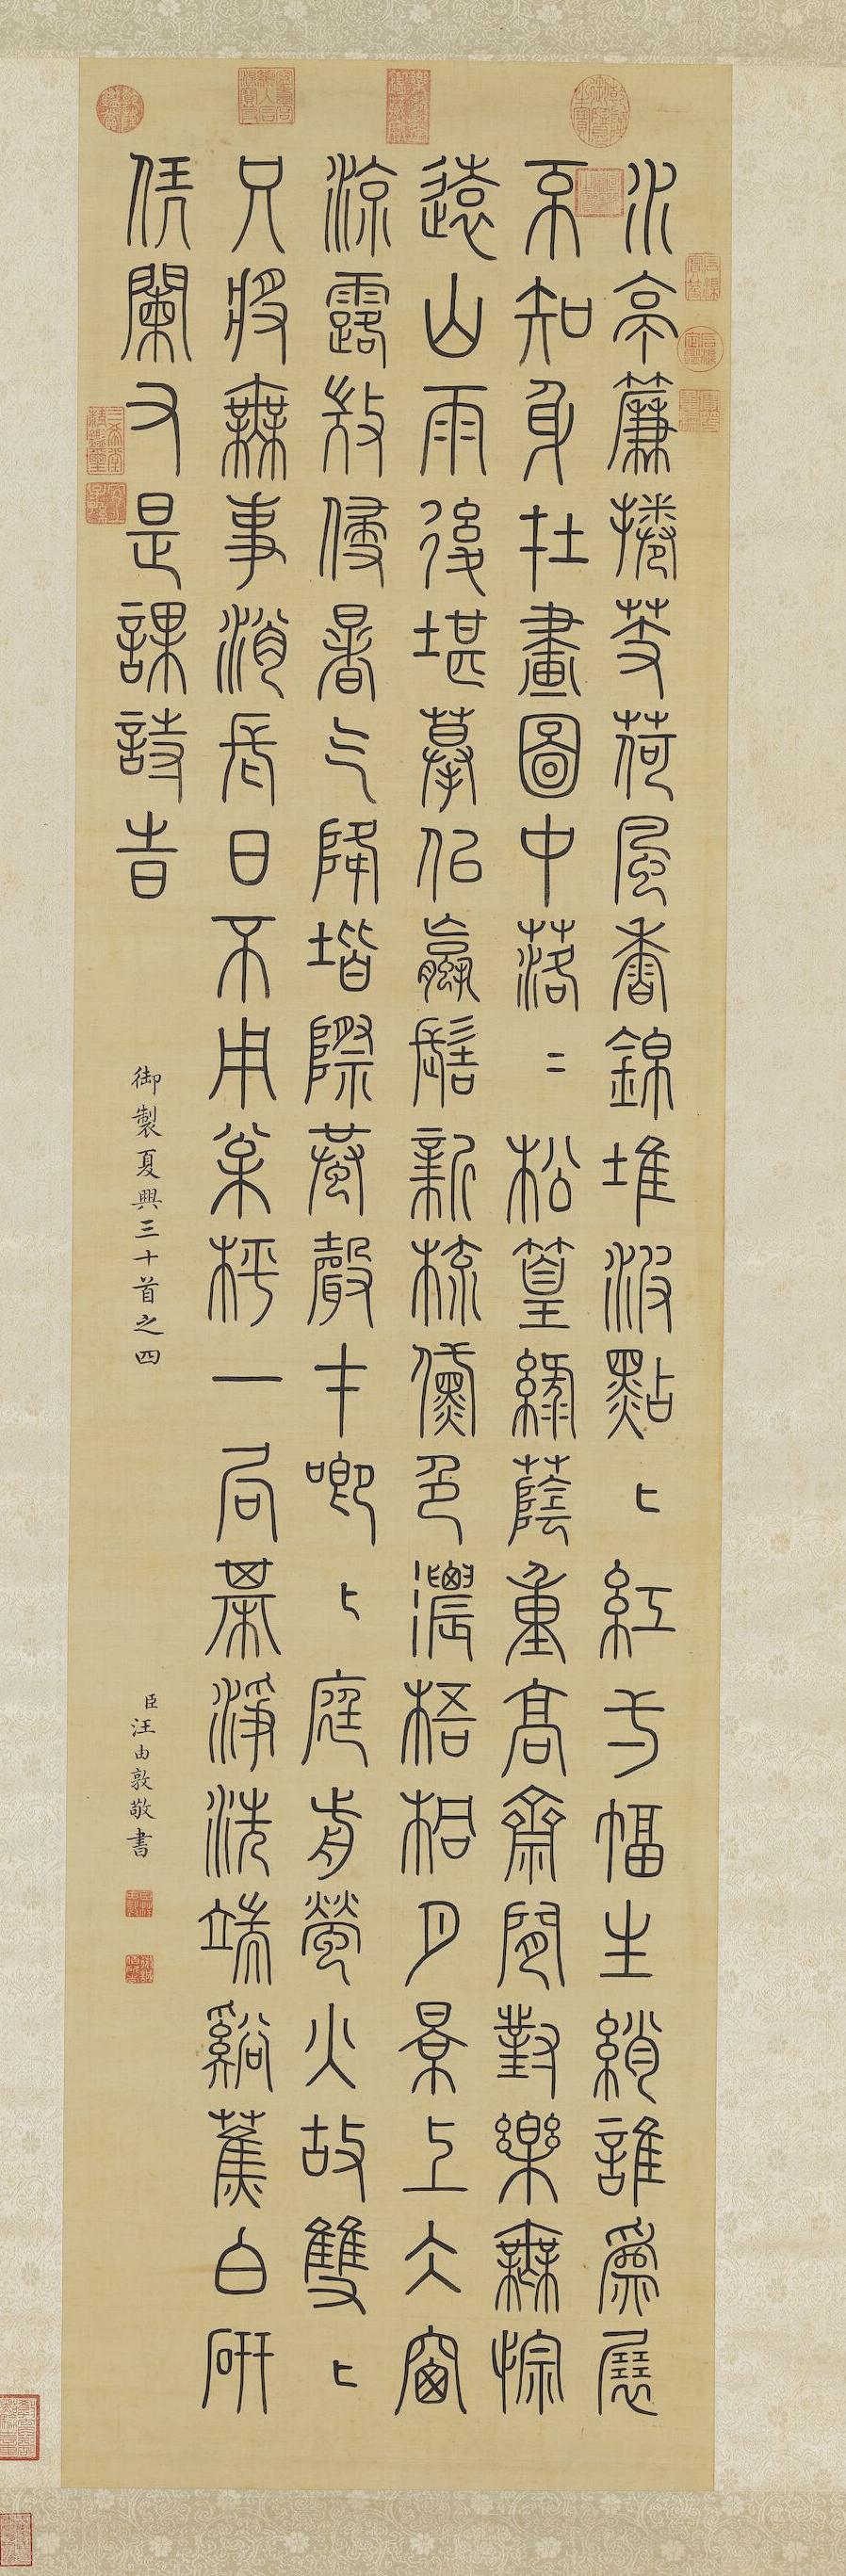 水亭簾捲芰荷風香錦堆波點〻紅方幅生綃誰為展
不知身在畫圖中落〻松篁綠蔭重高齋閒對樂無悰
遠山雨後堪摹似蠃髻新梳黛色濃梧桐月景上窗
涼露侵暑气降堦際蛩聲才唧〻庭前螢火故雙〻
只將無事消長日不用枰一局棊淨洗端谿蕉白研
凭闌又是課詩旹
御製夏興三十首之四
臣汪由敦敬書